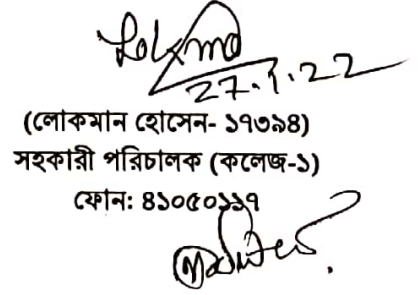 27.1.22
(লোকমান হোসেন- ১৭৩৯৪)
সহকারী পরিচালক (কলেজ-১)
ফোন: ৪১০৫০১১৭